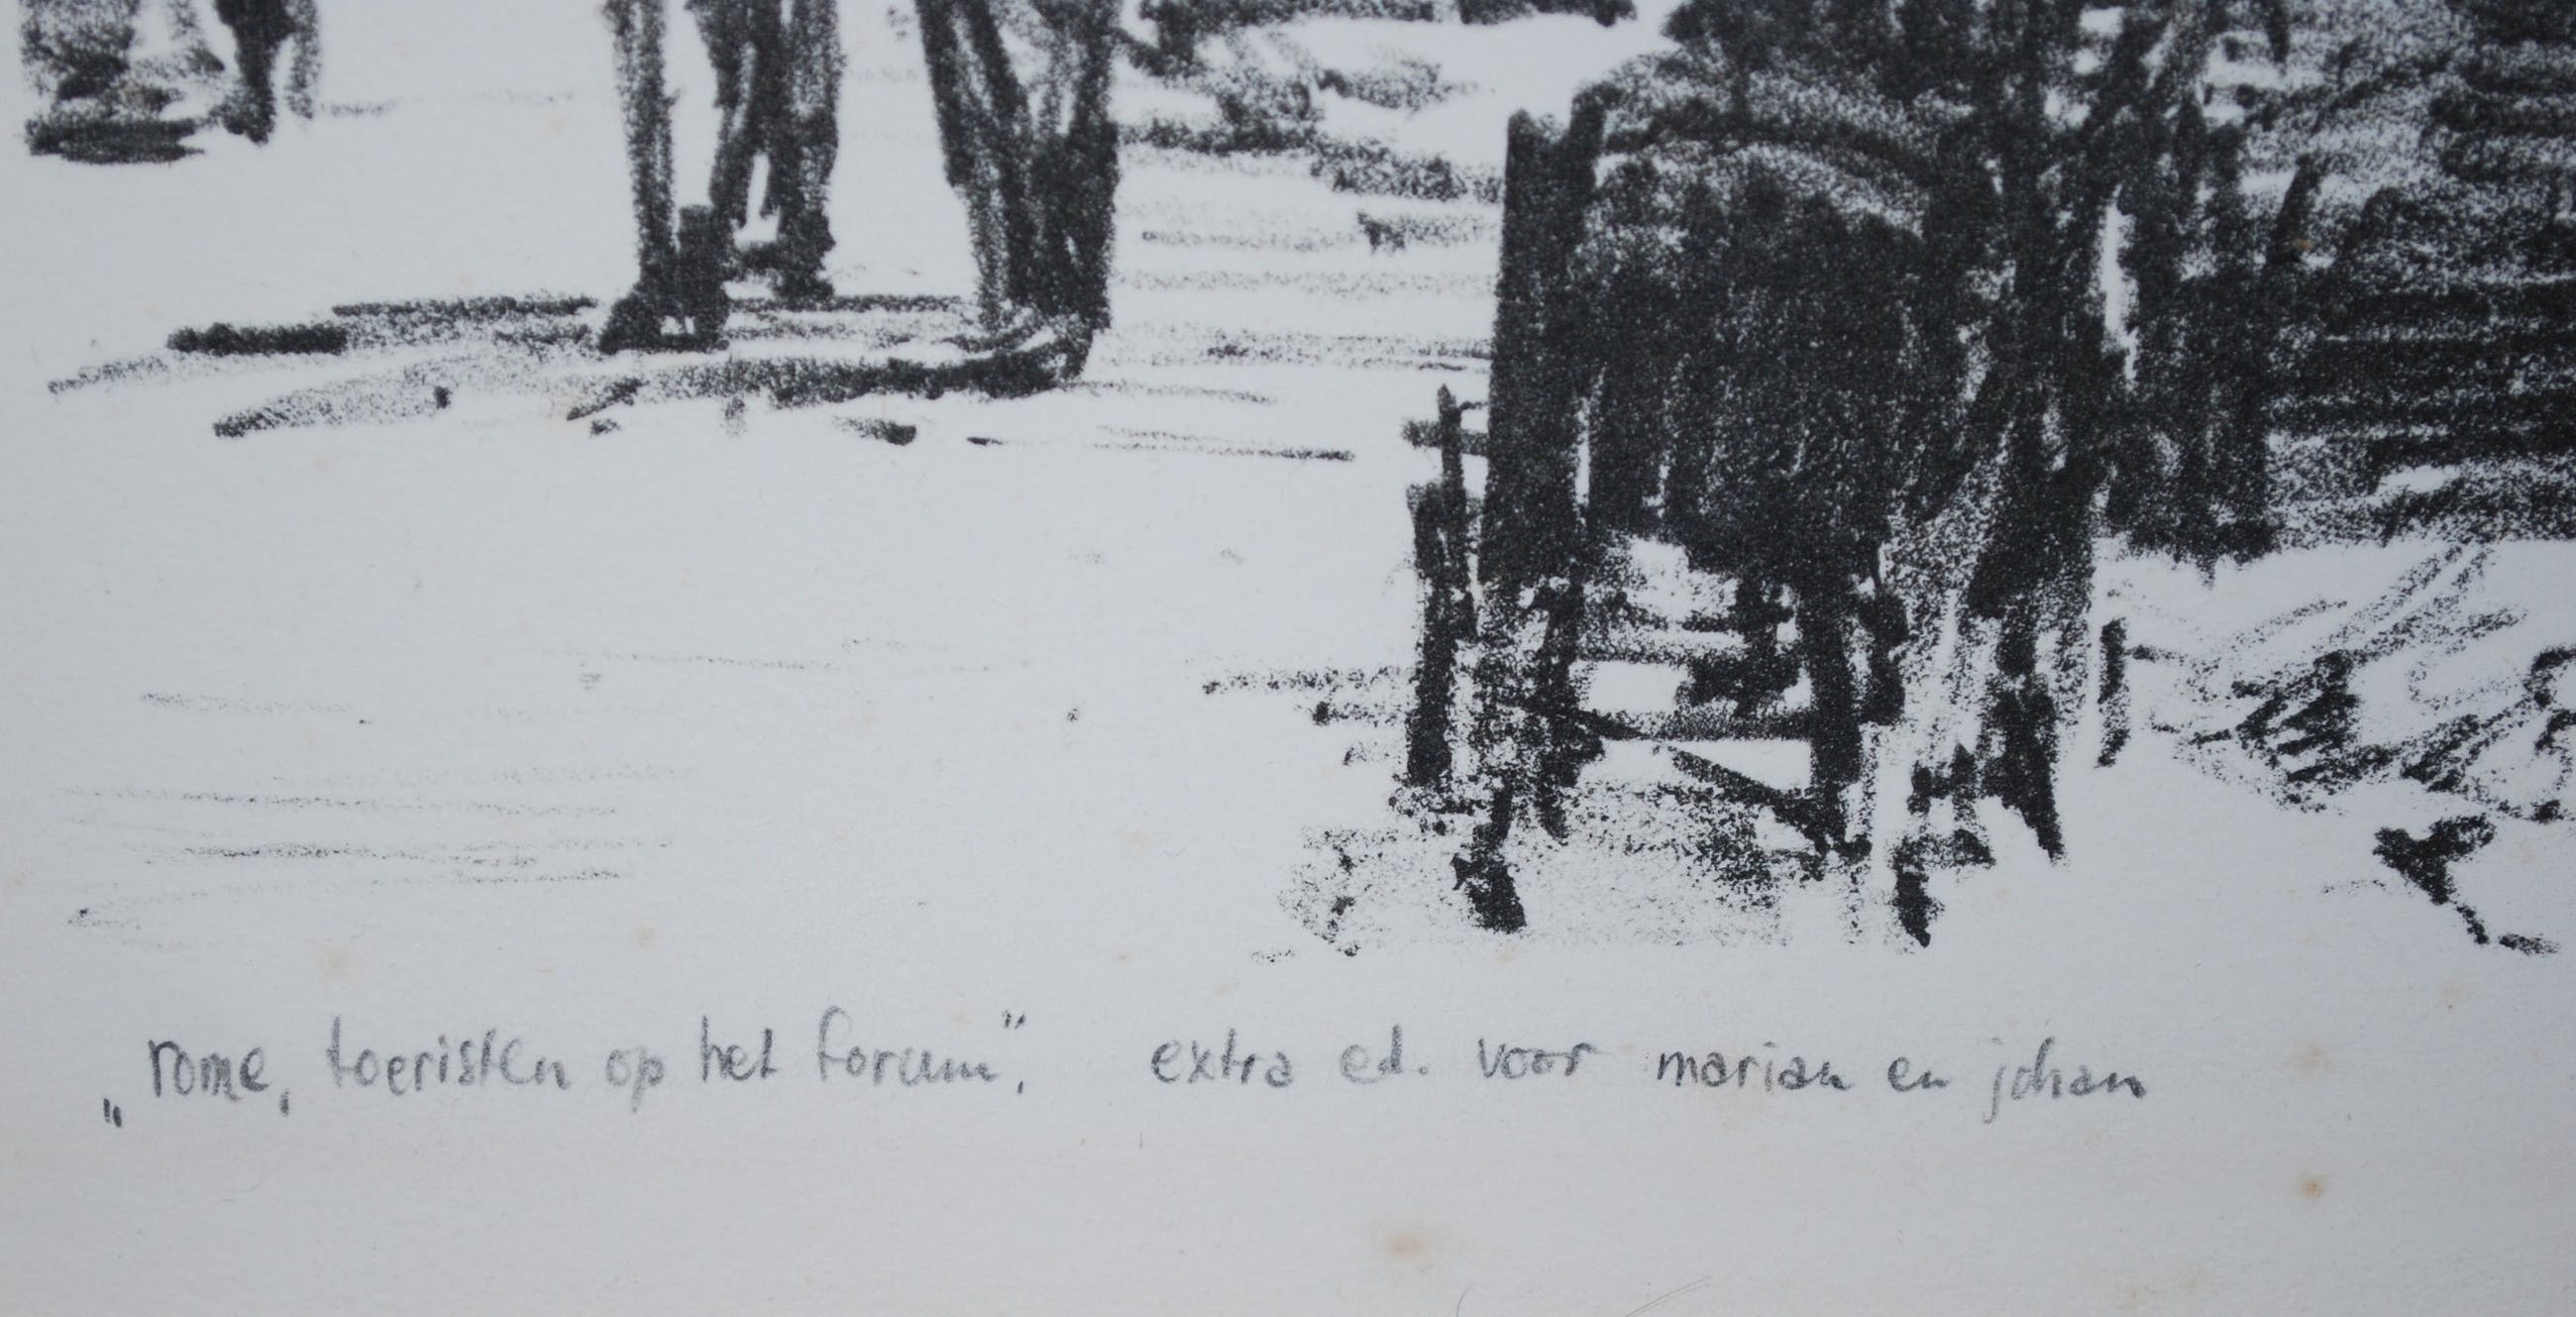 „rome, toeristen op het forum”. extra ed. voor marian en johan